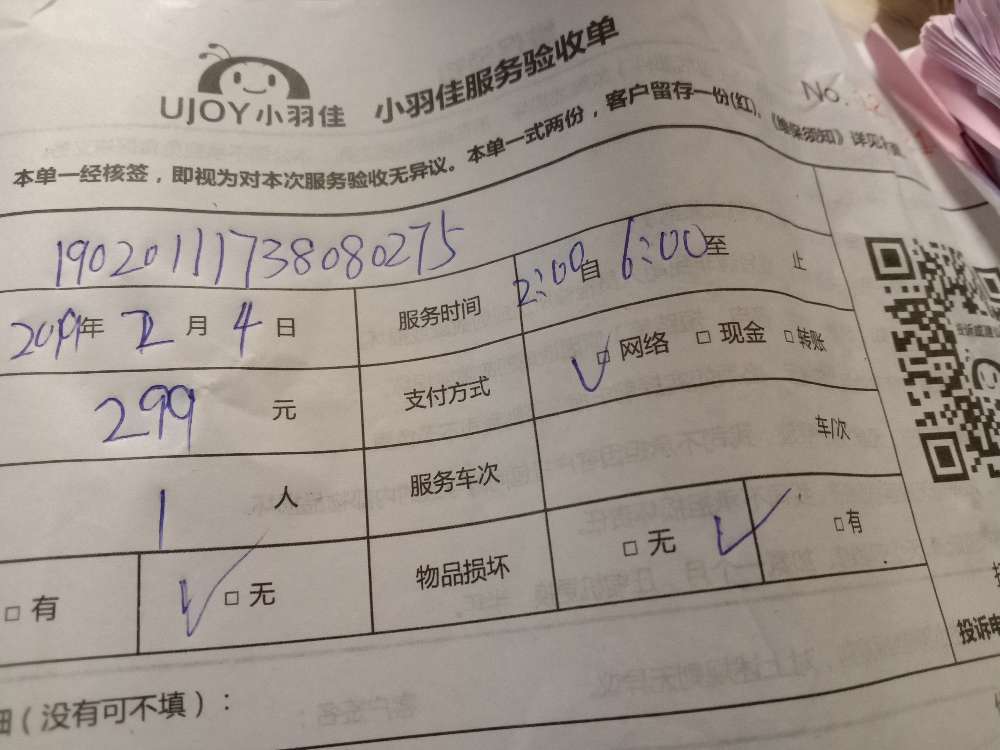 UJOY小羽佳 小羽佳服务验收单
No.
本单一经核签，即视为对本次服务验收无异议。本单一式两份，客户留存一份(红)。《维保须知》详见
19020111738080275
2019年 2月 4日 服务时间 2:00自 6:00至 止
299 元 支付方式 ✓□网络 □现金 □转账
1 人 服务车次 车/次
□有 ✓□无 物品损坏 □无 ✓ □有
投诉电
细（没有可不填）：